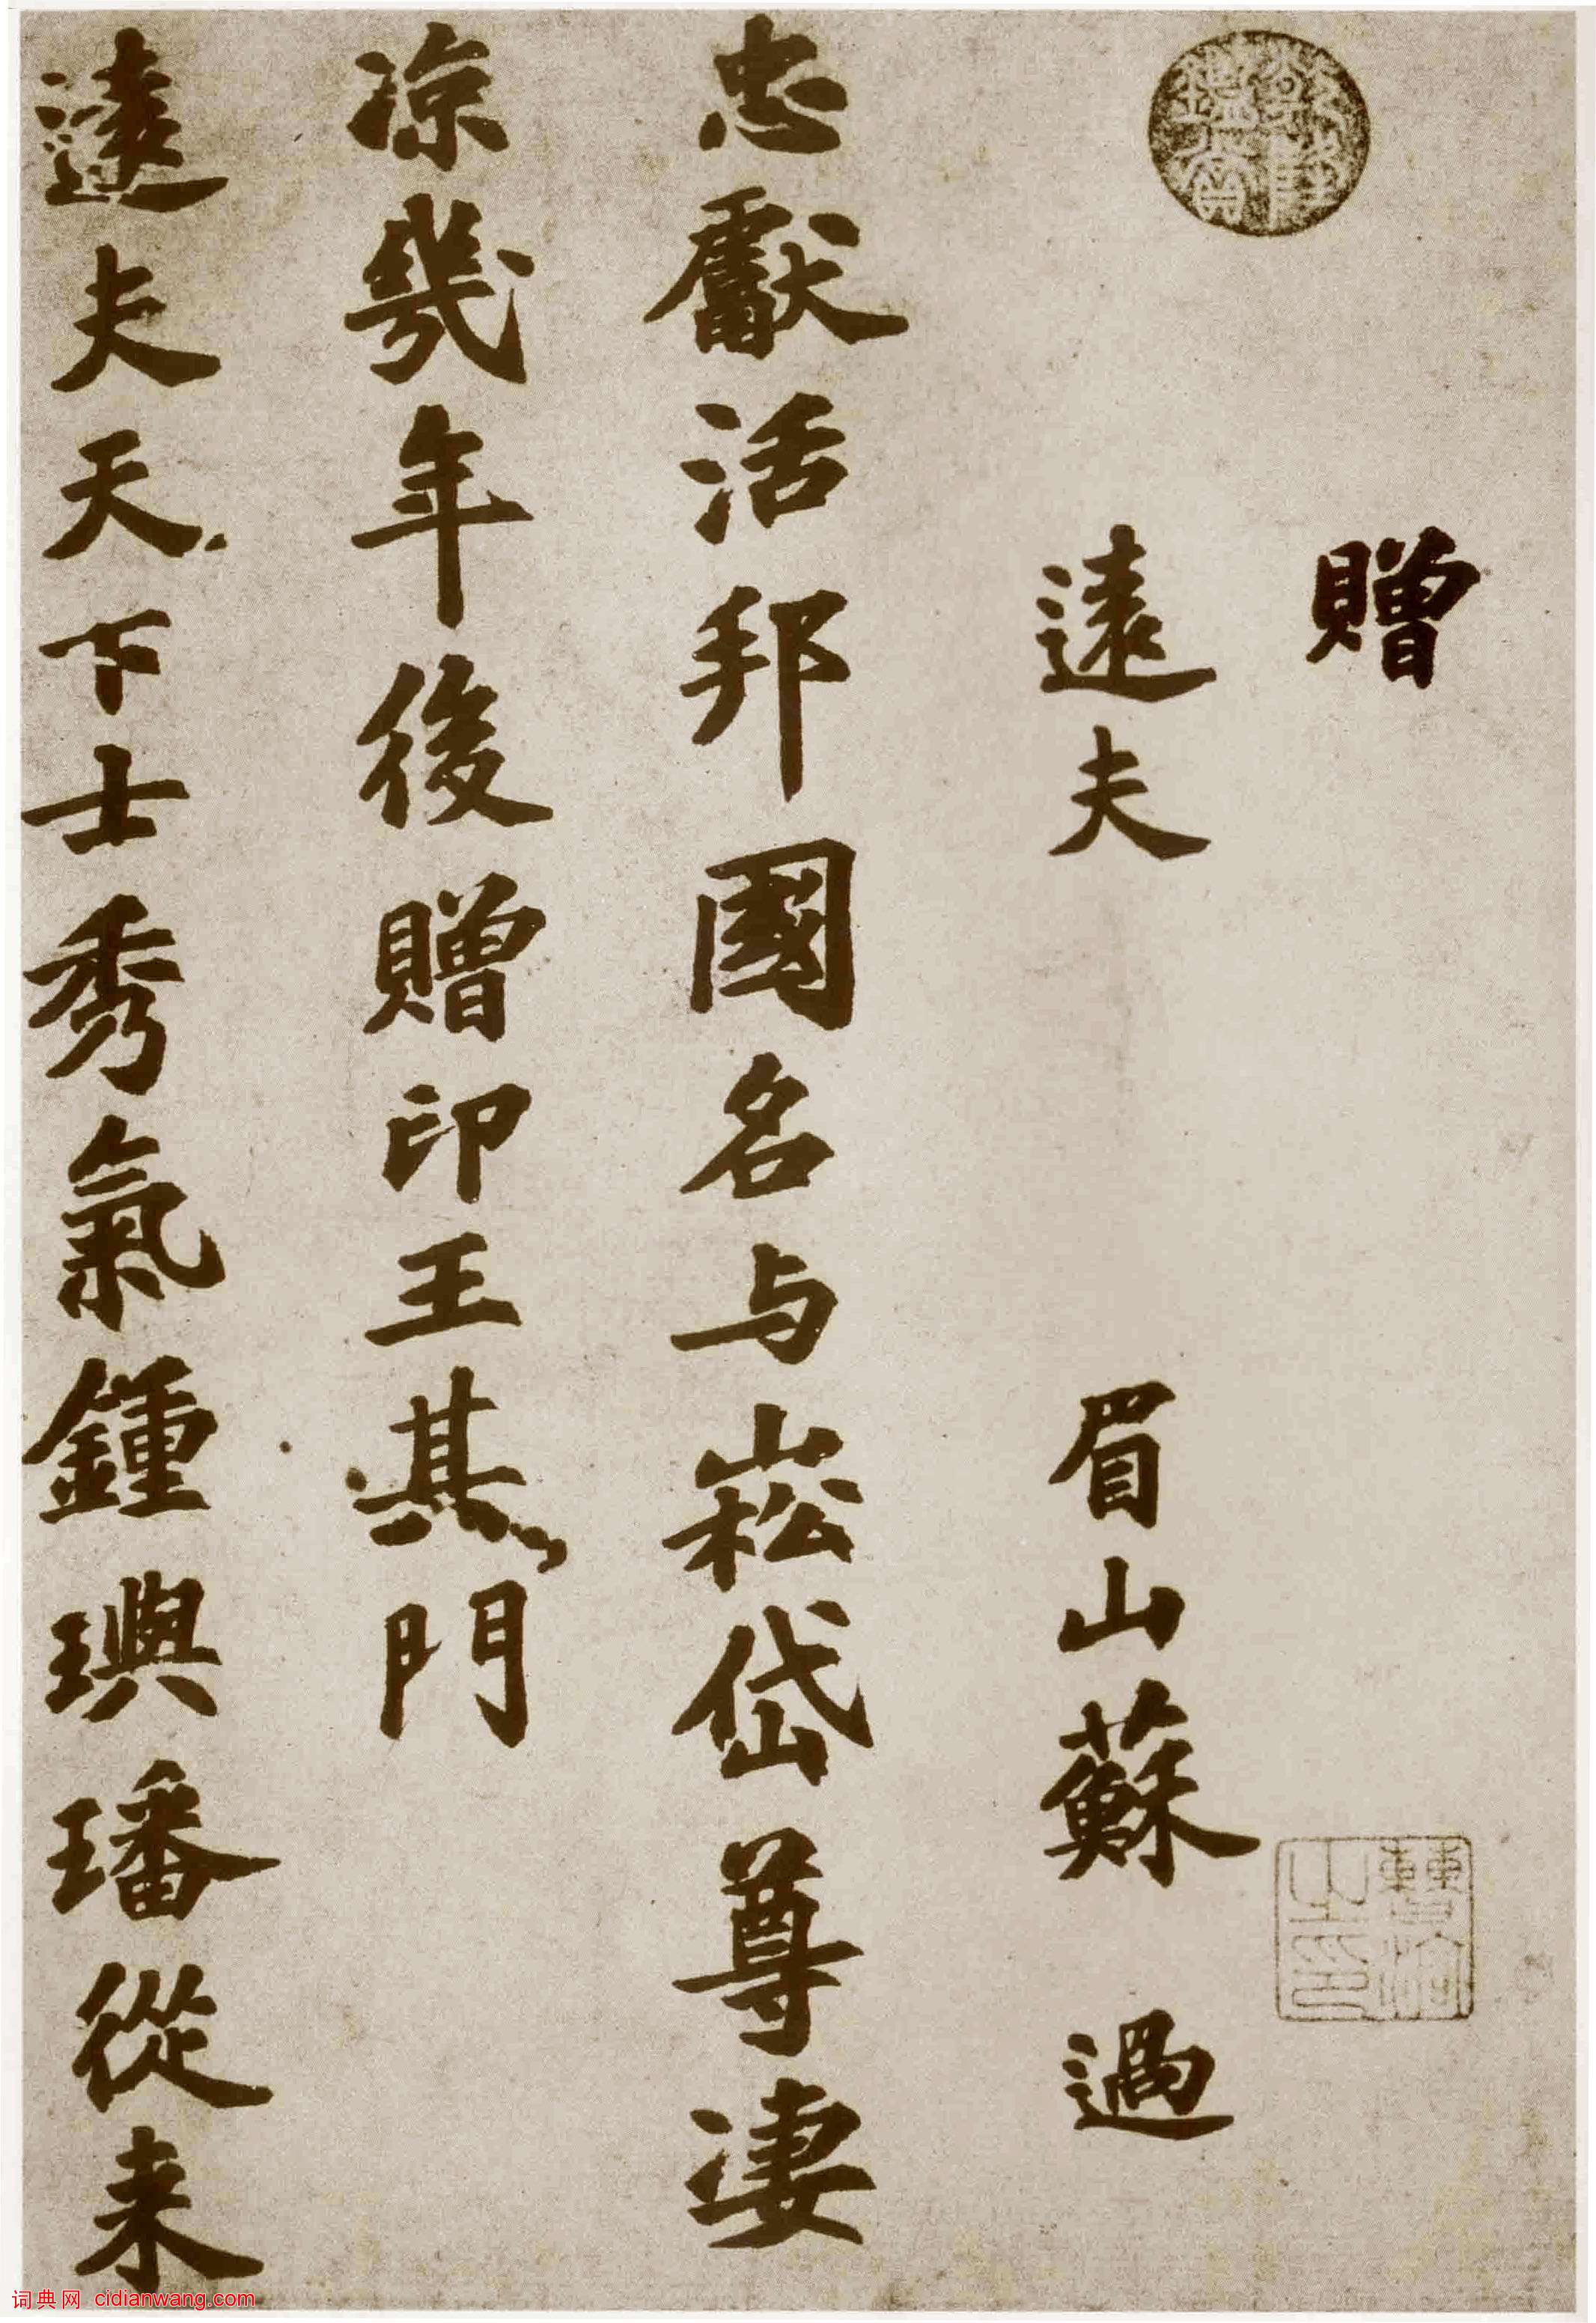 贈
遠夫 眉山蘇 過
忠獻活邦國名与崧岱尊凄
凉幾年後贈印王其門
遠夫天下士秀氣鍾璵璠從来
之印
词典网 cidianwang.com